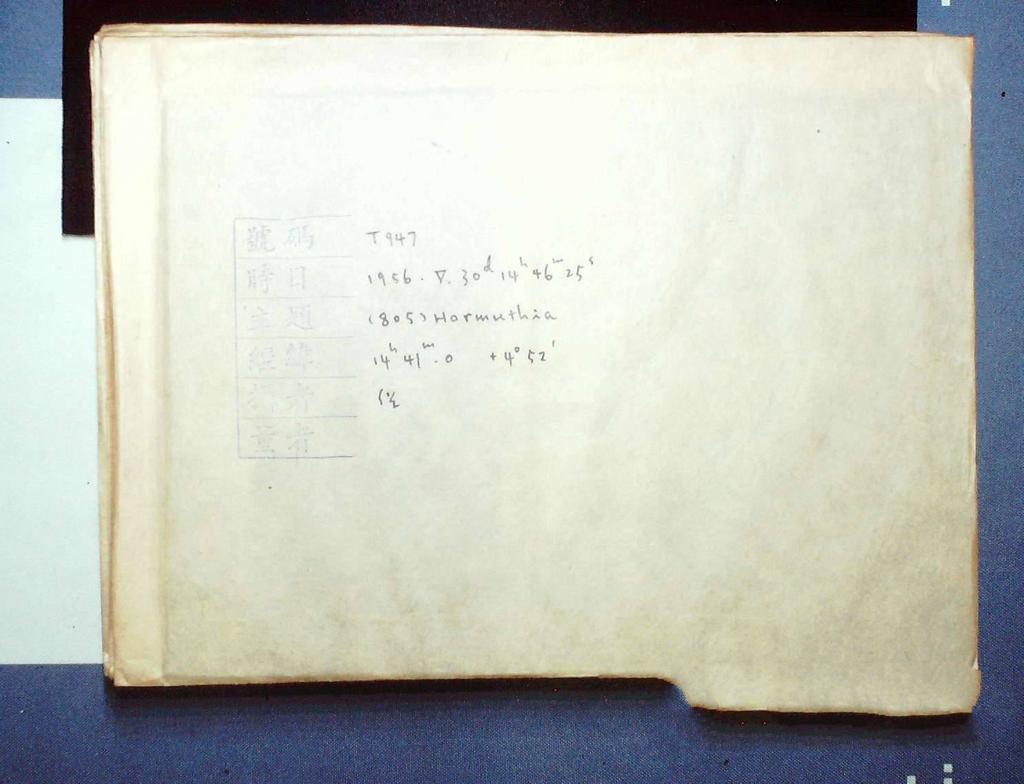 號碼 T947
時日 1956. V. 30ᵈ 14ʰ 46ᵐ 25ˢ
主題 (805) Hormuthia
經緯 14ʰ 41ᵐ.0 +4° 52'
攝者
量者